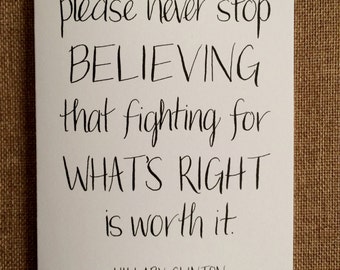 please never stop
BELIEVING
that fighting for
WHAT'S RIGHT
is worth it.
HILLARY CLINTON